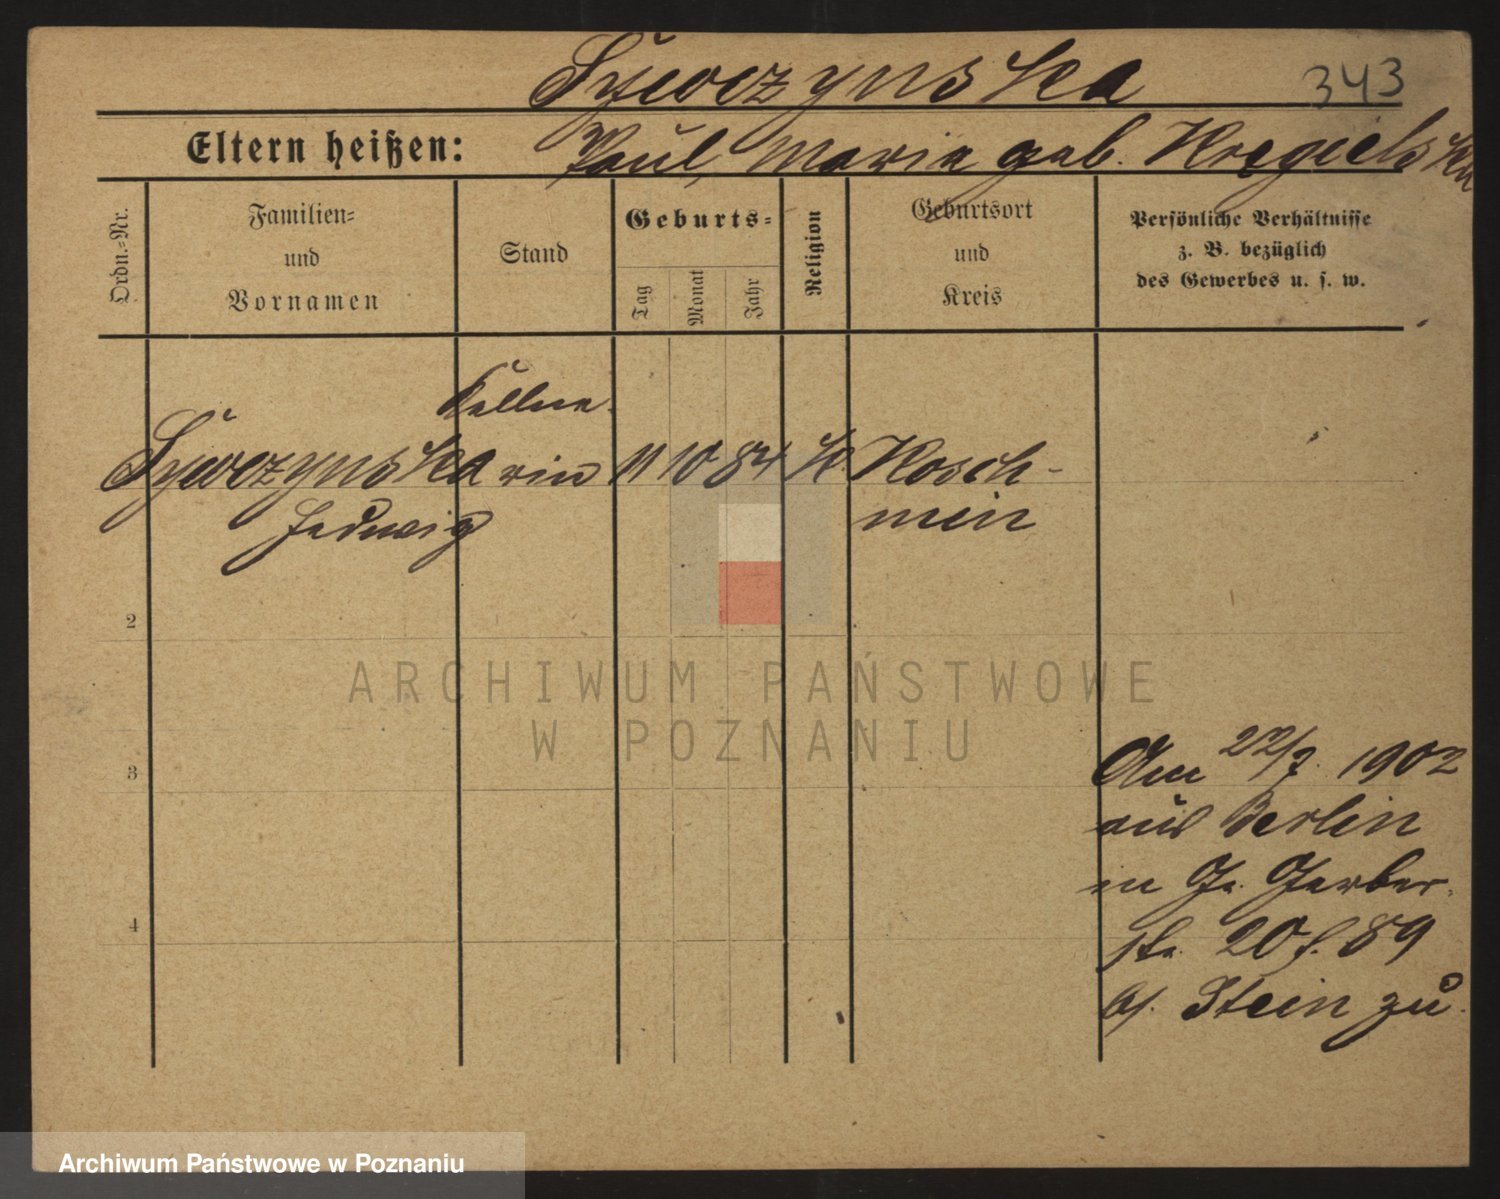 Sywczynska 343
Eltern heißen: Paul, Maria geb.
Ordn.-Nr.
Familien-
und
Vornamen
Stand
Geburts-
Tag Monat Jahr
Religion
Geburtsort
und
Kreis
Persönliche Verhältnisse
z. B. bezüglich
des Gewerbes u. s. w.
Kellne-
Sywczynska rin 11 10 84 K. Kosch-
Hedwig min
2
3
4
Am 22/7. 1902
aus Berlin
in Gerber-
str. 20 f. 89
b/. Stein zu.
ARCHIWUM PAŃSTWOWE
W POZNANIU
Archiwum Państwowe w Poznaniu